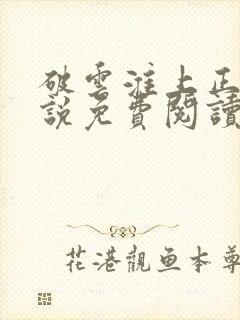 破雲淮上正
說免費閱讀
花港觀鱼本尊